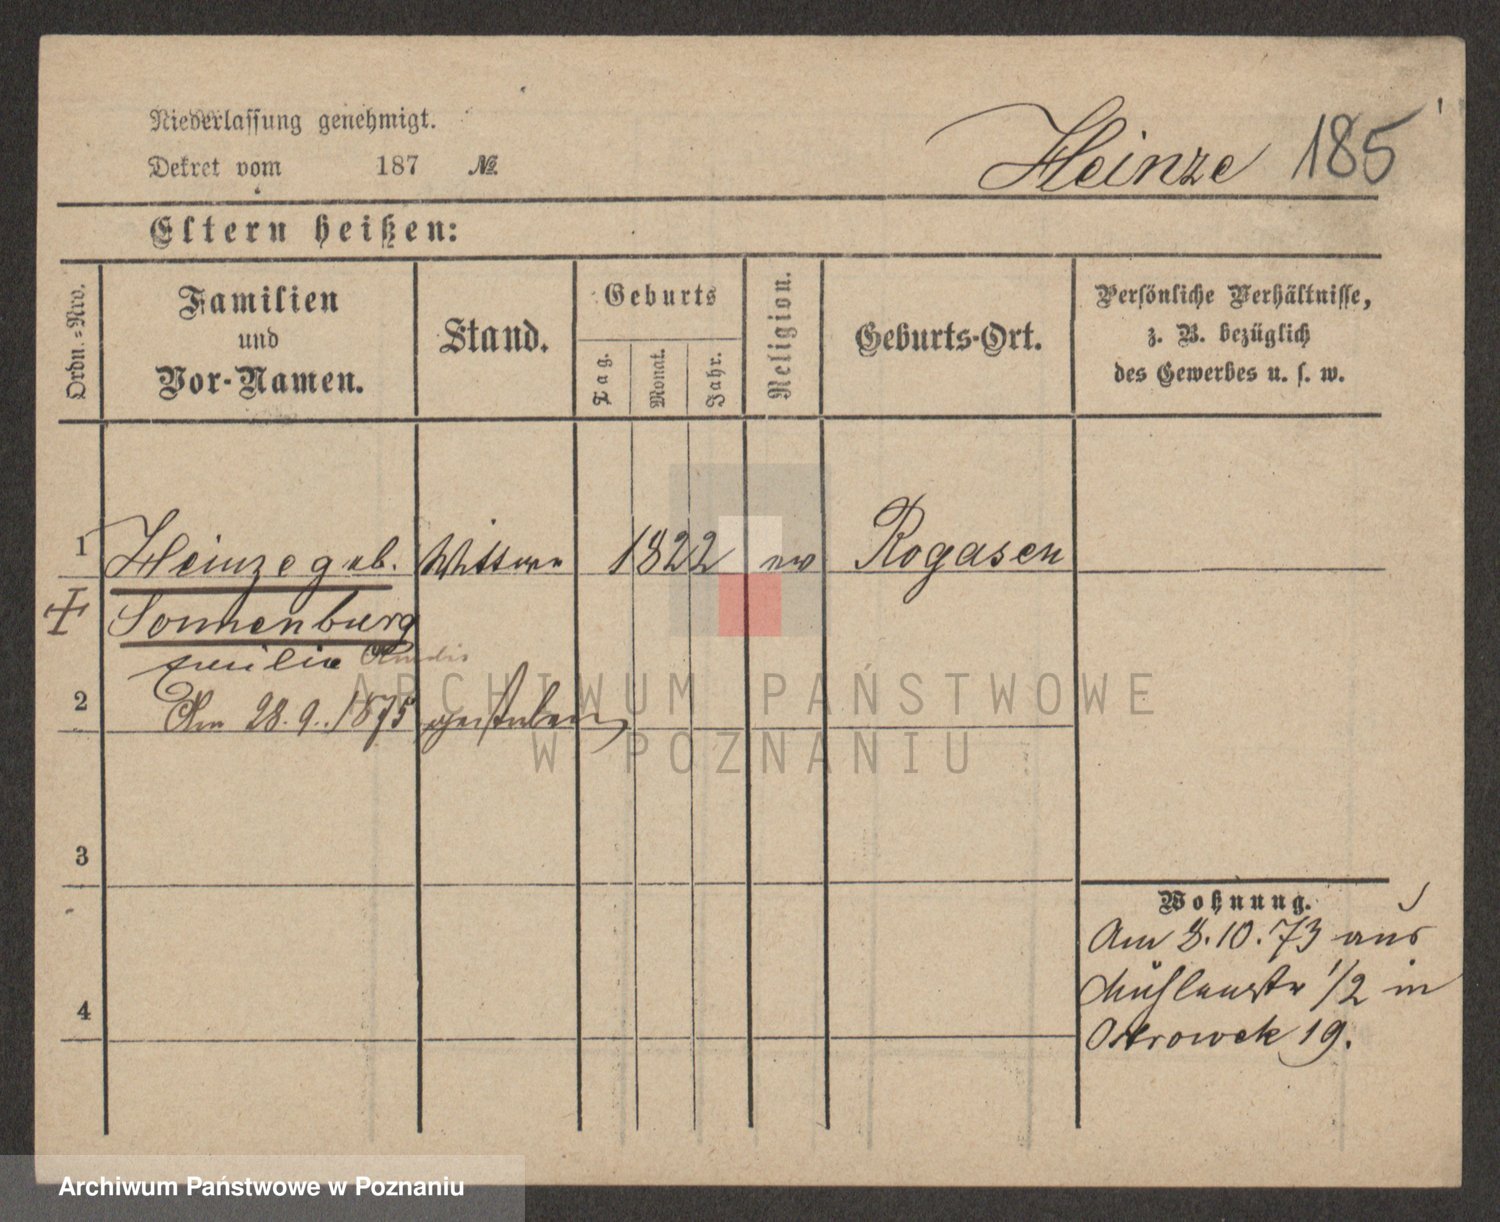 Niederlassung genehmigt.
Dekret vom 187 №
Heinze 185
Eltern heißen:
Ordn.-Nro.
Familien
und
Vor-Namen.
Stand.
Geburts
Tag.
Monat.
Jahr.
Religion.
Geburts-Ort.
Persönliche Verhältnisse,
z. B. bezüglich
des Gewerbes u. s. w.
1 Heinze geb. Wittwe 1822 ev Rogasen
Sonnenburg
Emilie
2 Am 28.9.1875 gestorben
ARCHIWUM PAŃSTWOWE
W POZNANIU
3
Wohnung.
Am 8.10.73 aus
Mühlenstr 1/2 in
Ostrowek 19.
4
Archiwum Państwowe w Poznaniu